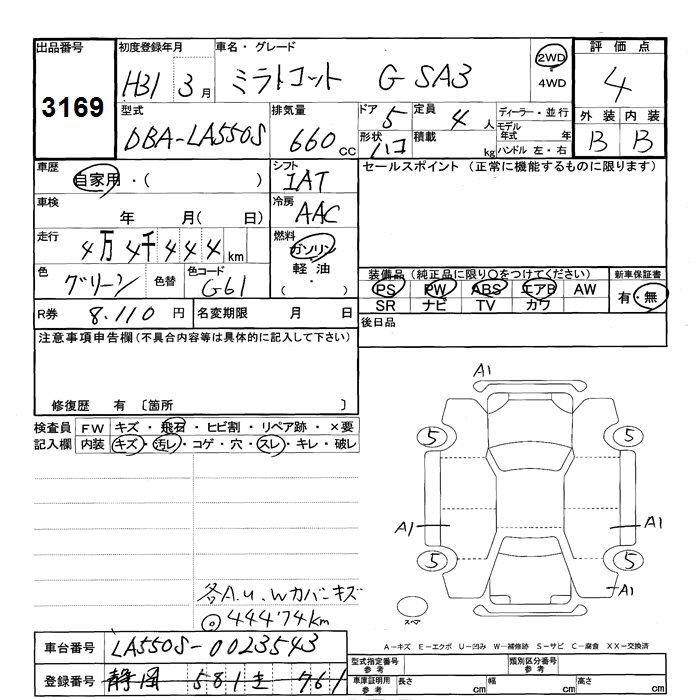 出品番号 初度登録年月 車名・グレード 評価点
3169 H31 3月 ミラトコット G SA3 2WD 4WD 4
型式 排気量 ドア 5 定員 4人 ディーラー・並行 外装 内装
DBA-LA550S 660cc 形状 ハコ 積載 kg モデル年式 年 ハンドル 左・右 B B
車歴 シフト セールスポイント (正常に機能するものに限ります)
自家用・( ) IAT
車検 年 月( 日) 冷房 AAC
走行 4万4千444km 燃料 ガソリン
軽油
( ・ )
色 グリーン 色替 色コード G61
装備品(純正品に限り○をつけてください) 新車保証書
PS PW ABS エアB AW 有・無
SR ナビ TV カワ
R券 8.110円 名変期限 月 日 後日品
注意事項申告欄(不具合内容等は具体的に記入して下さい)
修復歴 有 〔箇所 〕
検査員 FW キズ・飛石・ヒビ割・リペア跡・×要
記入欄 内装 キズ・汚レ・コゲ・穴・スレ・キレ・破レ
A1
5 5
A1 A1
5 5
A1
スペア
各A.u.wカバーキズ
◎44474km
A−キズ E−エクボ U−凹み W−補修跡 S−サビ C−腐食 XX−交換済
車台番号 LA550S-0023543
登録番号 静岡 581 を 761
型式指定番号 参考 類別区分番号 参考
車庫証明用 参考 長さ cm 幅 cm 高さ cm